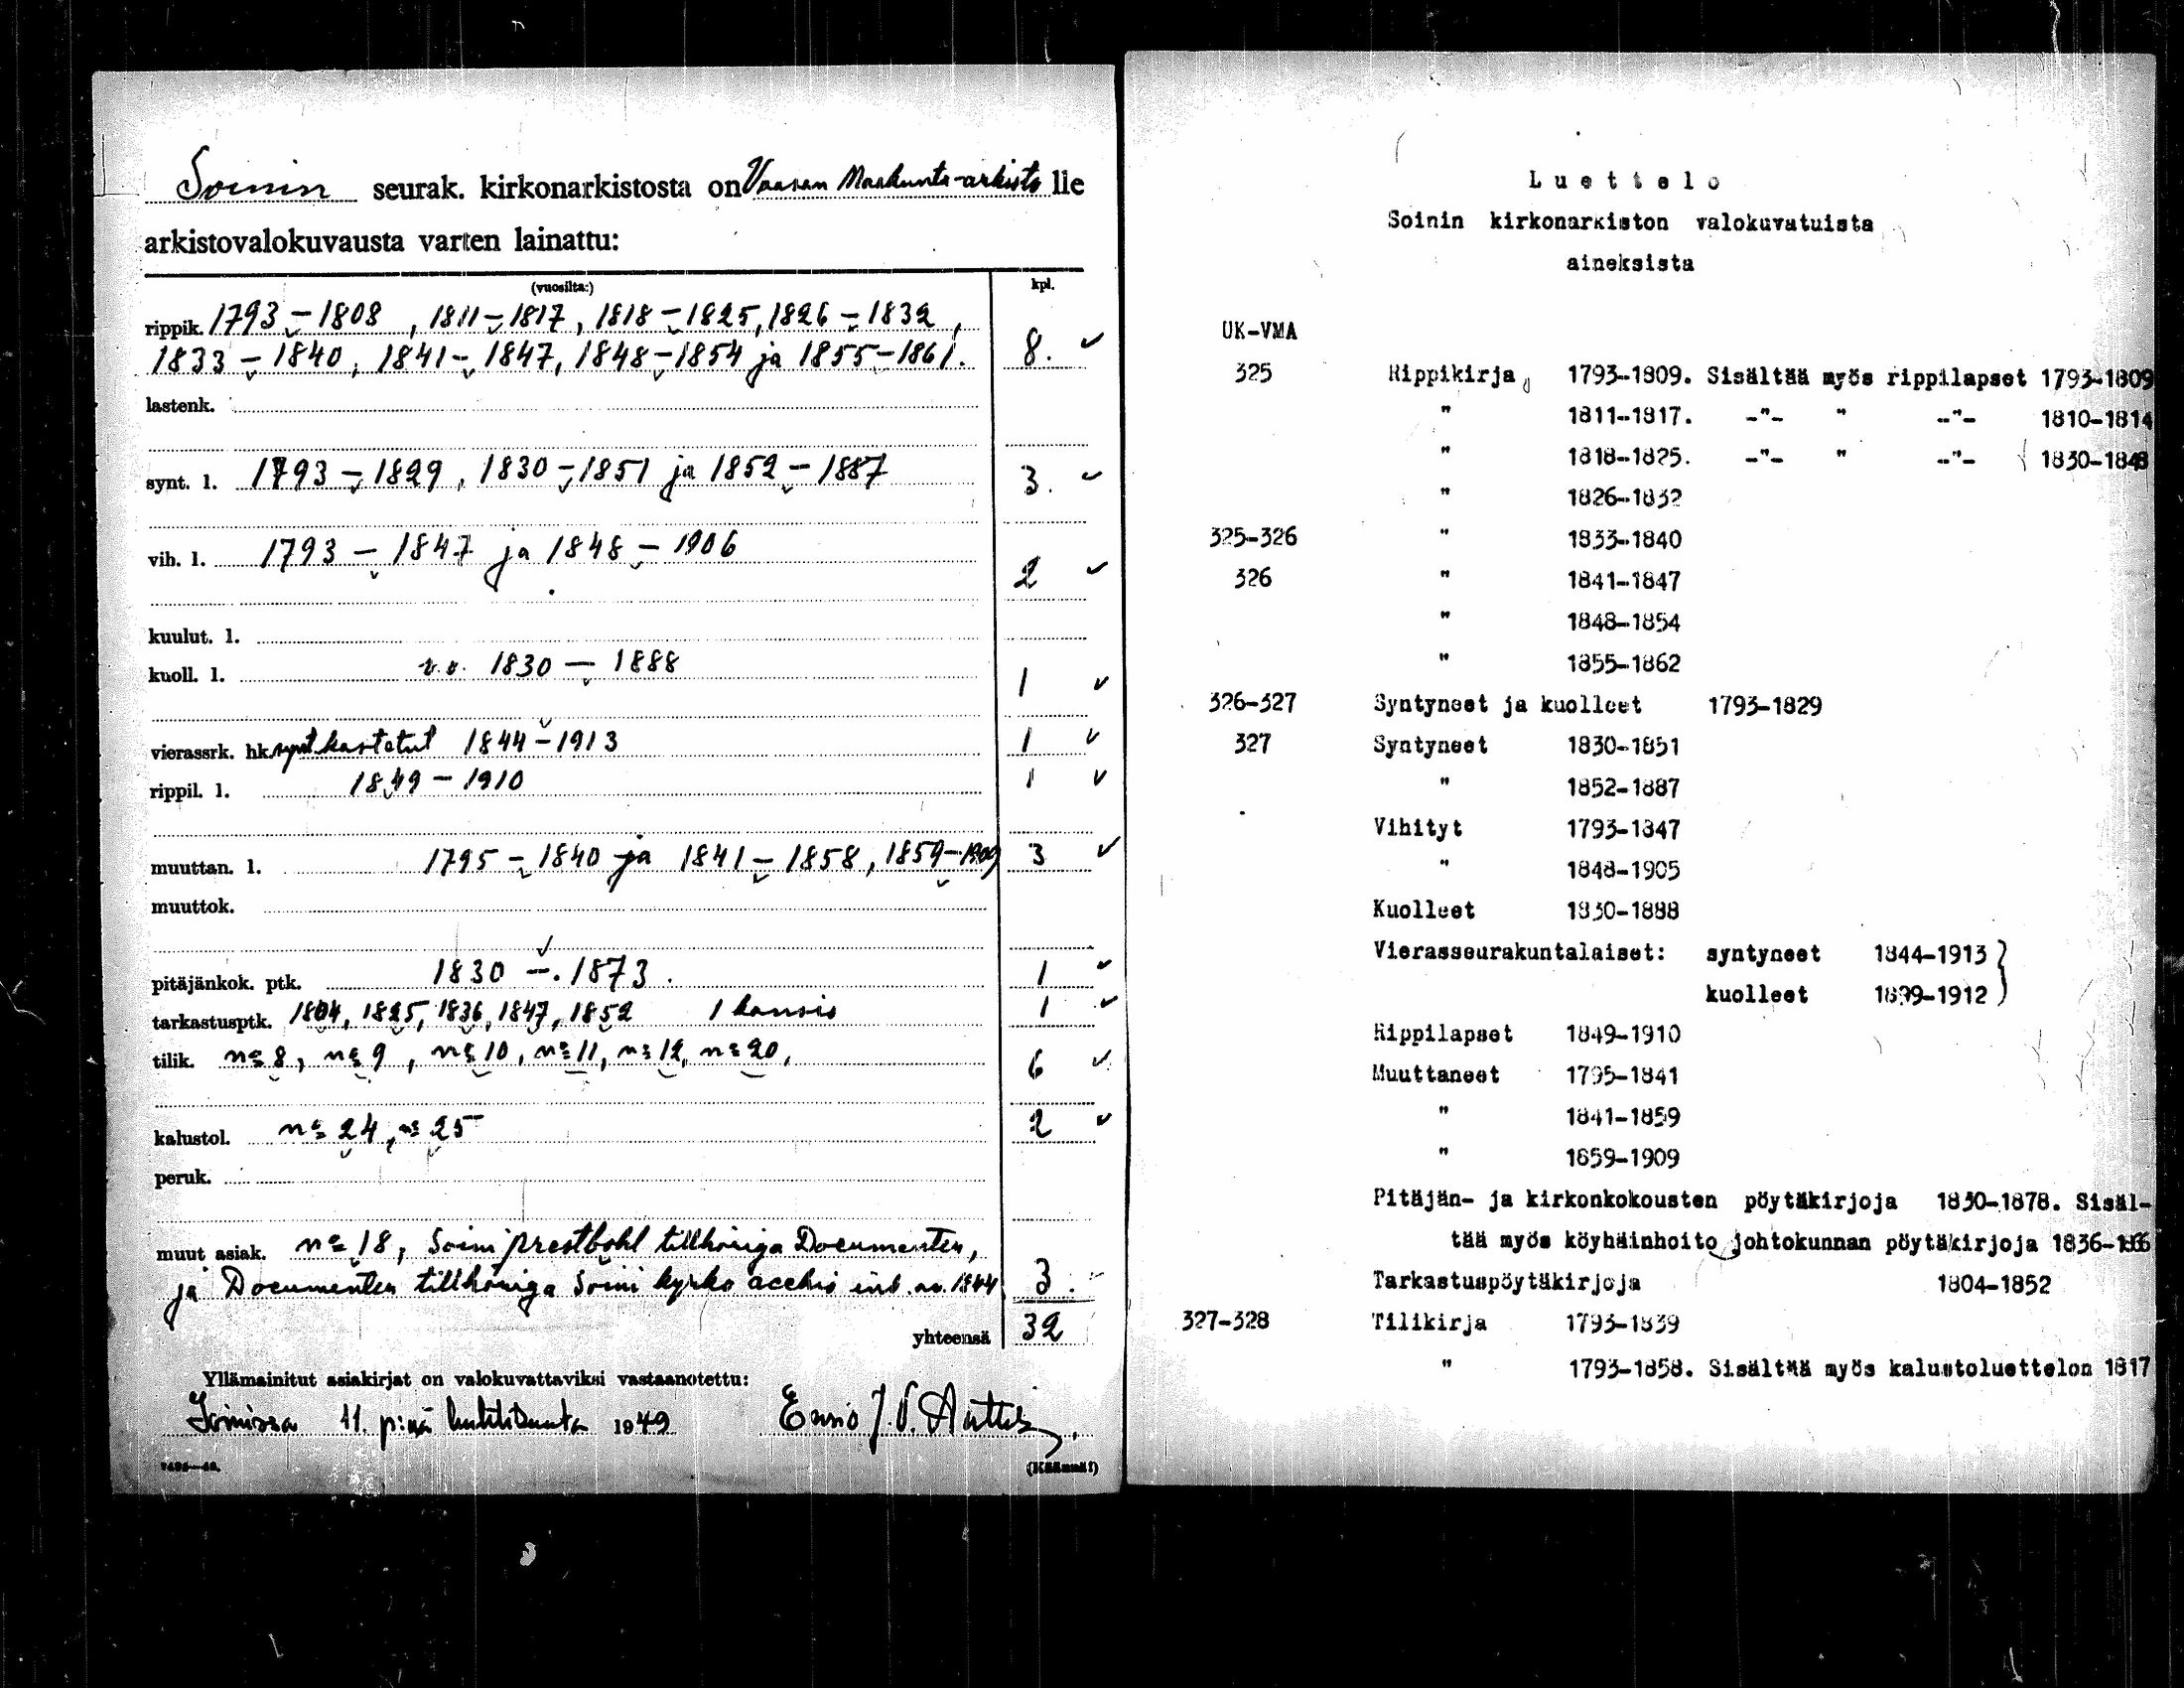 Soinin seurak. kirkonarkistosta on Vaasan Maakunta-arkisto lle
arkistovalokuvausta varten lainattu:
(vuosilta:) kpl.
rippik. 1793–1808, 1811–1817, 1818–1825, 1826–1832,
1833–1840, 1841–1847, 1848–1854 ja 1855–1861. 8.
lastenk.
synt. l. 1793–1829, 1830–1851 ja 1852–1887 3.
vih. l. 1793–1847 ja 1848–1906 2
kuulut. l.
kuoll. l. v.v. 1830–1888 1
vierassrk. hk. synt. kastetut 1844–1913 1
rippil. l. 1849–1910 1
muuttan. l. 1795–1840 ja 1841–1858, 1859–1909 3
muuttok.
pitäjänkok. ptk. 1830–1873. 1
tarkastusptk. 1804, 1825, 1836, 1847, 1852 1 kansio 1
tilik. n:o 8, n:o 9, n:o 10, n:o 11, n:o 12, n:o 20, 6
kalustol. n:o 24, n:o 25 2
peruk.
muut asiak. n:o 18, Soini prestbohl tillhöriga Documenten,
ja Documenten tillhöriga Soini kyrko 1844 3.
yhteensä 32
Yllämainitut asiakirjat on valokuvattaviksi vastaanotettu:
Soinissa 11. p:nä huhtikuuta 1949 Eino J. V.
(Käännä!)
Luettelo
Soinin kirkonarkiston valokuvatuista
aineksista
UK-VMA
325 Rippikirja, 1793-1809. Sisältää myös rippilapset 1793-1809
" 1811-1817. -"- " -"- 1810-1814
" 1818-1825. -"- " -"- 1830-1848
" 1826-1832
325-326 " 1833-1840
326 " 1841-1847
" 1848-1854
" 1855-1862
326-327 Syntyneet ja kuolleet 1793-1829
327 Syntyneet 1830-1851
" 1852-1887
Vihityt 1793-1847
" 1848-1905
Kuolleet 1830-1888
Vierasseurakuntalaiset: syntyneet 1844-1913
kuolleet 1899-1912
Rippilapset 1849-1910
Muuttaneet 1795-1841
" 1841-1859
" 1859-1909
Pitäjän- ja kirkonkokousten pöytäkirjoja 1830-1878. Sisäl-
tää myös köyhäinhoito johtokunnan pöytäkirjoja 1836-1866
Tarkastuspöytäkirjoja 1804-1852
327-328 Tilikirja 1793-1839
" 1793-1858. Sisältää myös kalustoluettelon 1817